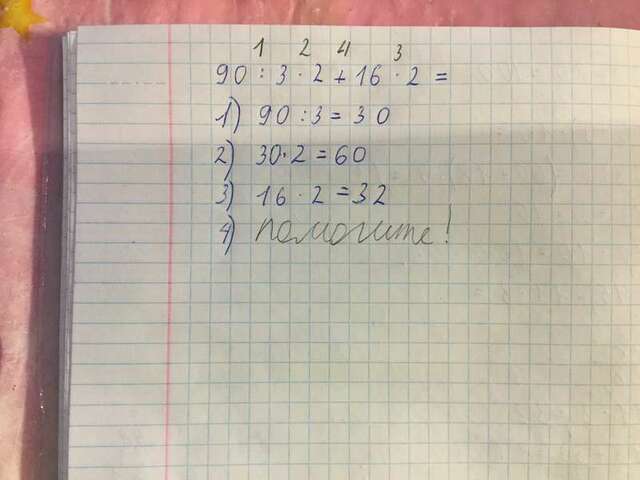 1 2 4 3
90 : 3 · 2 + 16 · 2 =
1) 90 : 3 = 30
2) 30 · 2 = 60
3) 16 · 2 = 32
4) помогите!